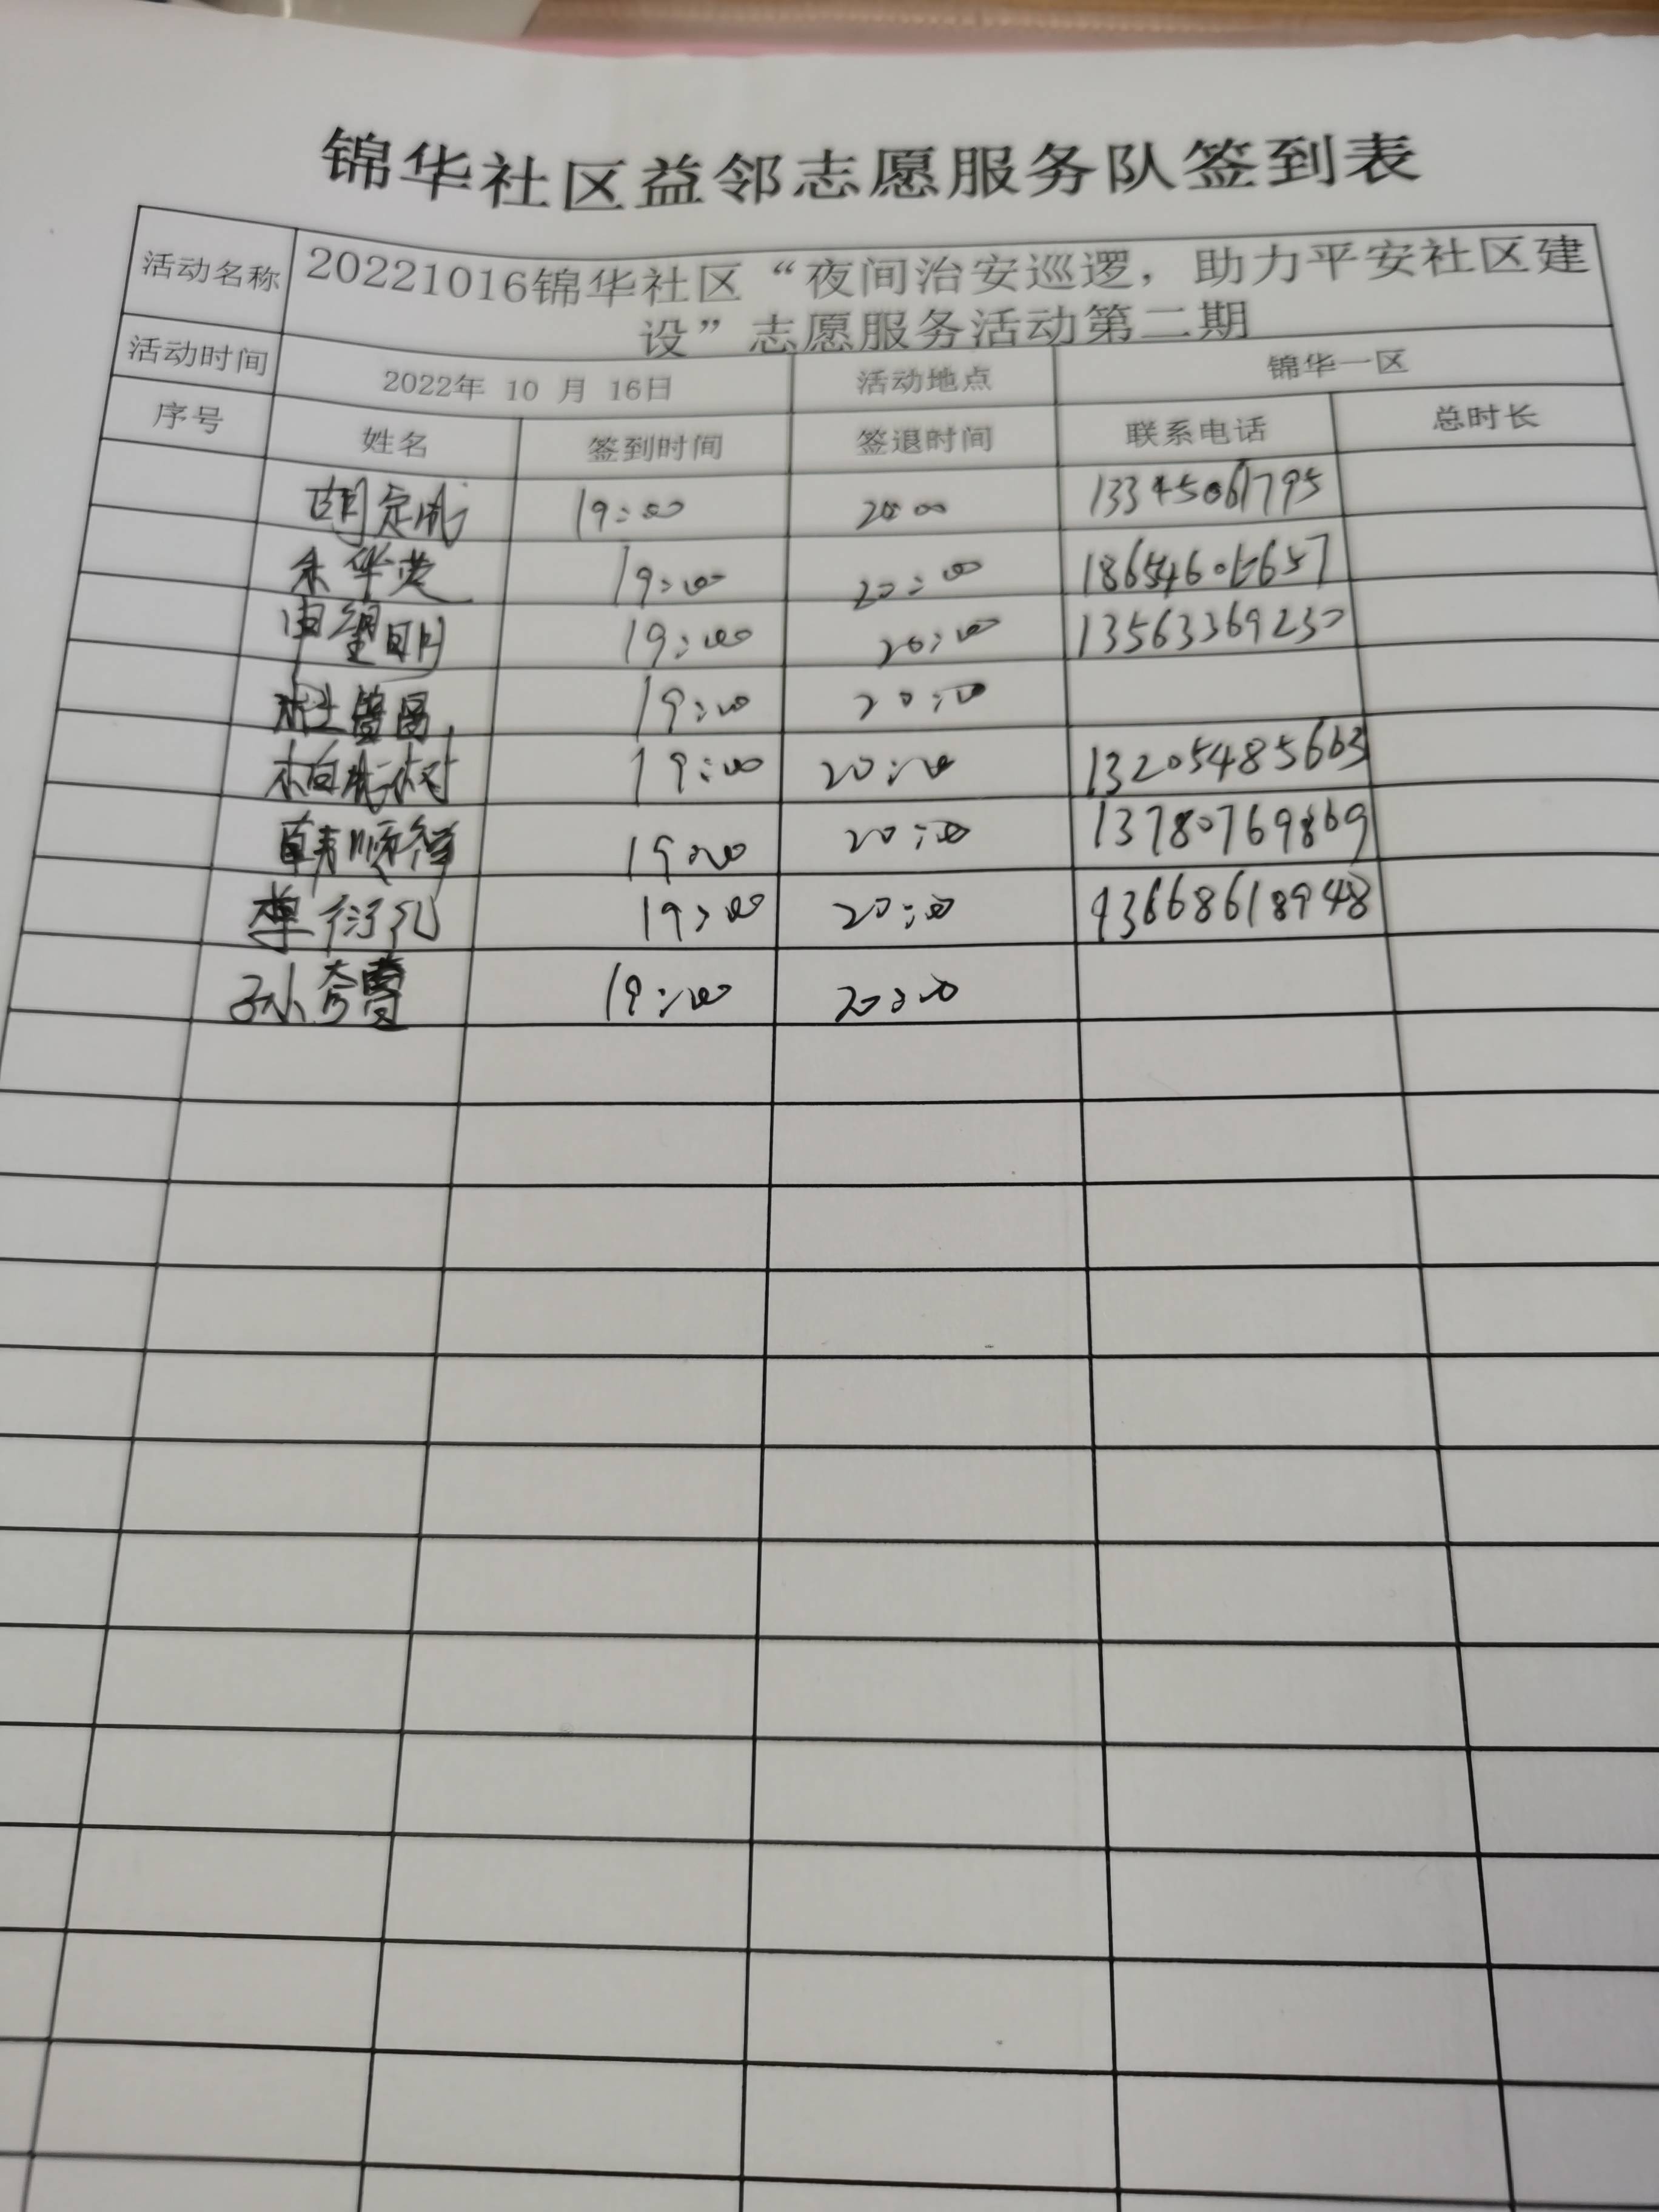 锦华社区益邻志愿服务队签到表
活动名称 20221016锦华社区“夜间治安巡逻，助力平安社区建
设”志愿服务活动第二期
活动时间 2022年 10 月 16日 活动地点 锦华一区
序号 姓名 签到时间 签退时间 联系电话 总时长
胡定成 19:00 20:00 13345061795
19:00 20:00
申望明 19:00 20:00 13563369230
19:00 20:00
柏成树 19:00 20:00 13205485663
韩顺祥 19:00 20:00 13780769869
李衍孔 19:00 20:00 13668618948
19:00 20:00